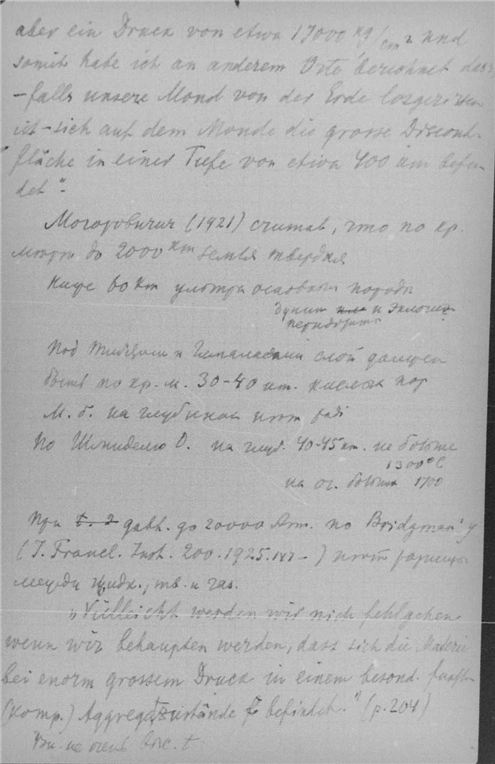 aber ein Druck von etwa 17000 kg/cm² und
somit habe ich an anderem Orte berechnet dass
-falls unsere Mond von der Erde losgerissen
ist - sich auf dem Monde die grosse Discont
fläche in einer Tiefe von etwa 400 km befin
det".
Могоровичич (1921) считав, что по кр.
мере до 2000 km земля твердая
Ниже 60 km ультра основн породы
дунит и эклогит
перидотит
Под Тибетом и Гималаями слой должен
быть по кр. м. 30-40 km. кислых пор
М. б. на глубинах нет
По О. на глуб. 40-45 km. не больше
1300°C
на ог. больше 1700
При давл. до 20000 Atm. по Bridgman'у
(J. Francl. Inst. 200. 1925. -) нет разницы
между жидк., тв. и газ.
"Vielleicht werden wir nich
wenn wir behaupten werden, dass sich die Materie
bei enorm grossem Druck in einem besond.
(Komp.) Aggregatzustände befindet." (p. 204)
не очень выс. t